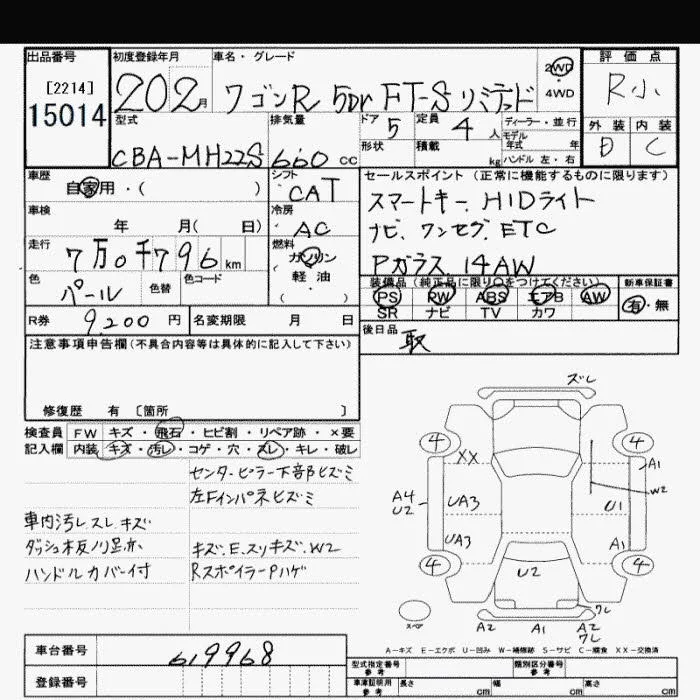 出品番号 初度登録年月 車名・グレード 評価点
[2214] 15014 202月 ワゴンR 5Dr FT-S リミテッド 2WD・4WD R小
型式 排気量 ドア 5 定員 4人 ディーラー・並行 外装 内装
CBA-MH22S 660cc 形状 積載 kg モデル年式 年 ハンドル 左・右 D C
車歴 自家用・( ) シフト CAT セールスポイント (正常に機能するものに限ります)
車検 年 月( 日) 冷房 AC スマートキー、HIDライト
ナビ、ワンセグ、ETC
走行 7万0千796km 燃料 ガソリン 軽油 ( ) Pガラス、14AW
色 パール 色替 色コード 装備品 (純正品に限り○をつけてください) 新車保証書
PS PW ABS エアB AW 有・無
SR ナビ TV カワ
R券 9200円 名変期限 月 日 後日品 取
注意事項申告欄(不具合内容等は具体的に記入して下さい)
修復歴 有 〔箇所 〕
検査員 FW キズ・飛石・ヒビ割・リペア跡・×要
記入欄 内装 キズ・汚レ・コゲ・穴・スレ・キレ・破レ
センターピラー下部ヒズミ
左Fインパネヒズミ
車内汚レ、スレ、キズ
ダッシュ板ノリ足跡 キズ、E、スリキズ、W2
ハンドルカバー付 RスポイラーPハゲ
ズレ
4 4
XX A1
W2
A4 U2 UA3 U1
UA3 A1
4 U2 4
ワレ
スペア A2 A1 A2 ワレ
A-キズ E-エクボ U-凹み W-補修跡 S-サビ C-腐食 XX-交換済
車台番号 619968
登録番号
型式指定番号 参考 類別区分番号 参考
車庫証明用 参考 長さ cm 幅 cm 高さ cm